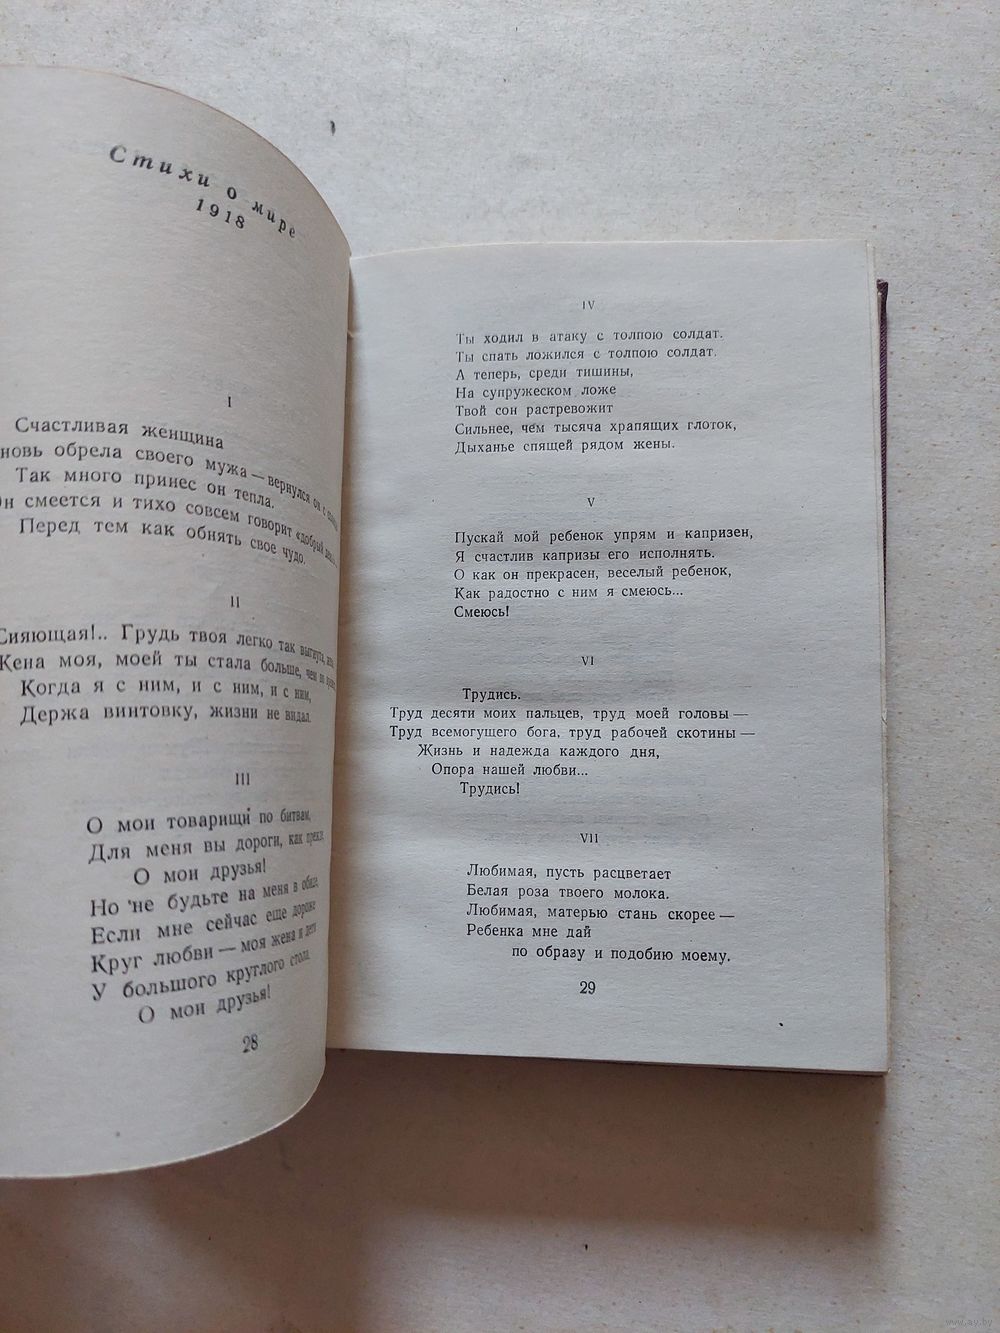 Стихи о мире
1918
I
Счастливая женщина
новь обрела своего мужа — вернулся он с
Так много принес он тепла.
Он смеется и тихо совсем говорит «добрый
Перед тем как обнять свое чудо.
II
Сияющая!.. Грудь твоя легко так выгнута,
Жена моя, моей ты стала больше, чем во
Когда я с ним, и с ним, и с ним,
Держа винтовку, жизни не видал.
III
О мои товарищи по битвам,
Для меня вы дороги, как прежде,
О мои друзья!
Но не будьте на меня в обиде,
Если мне сейчас еще дороже
Круг любви — моя жена и дети
У большого круглого стола.
О мои друзья!
28
IV
Ты ходил в атаку с толпою солдат.
Ты спать ложился с толпою солдат.
А теперь, среди тишины,
На супружеском ложе
Твой сон растревожит
Сильнее, чем тысяча храпящих глоток,
Дыханье спящей рядом жены.
V
Пускай мой ребенок упрям и капризен,
Я счастлив капризы его исполнять.
О как он прекрасен, веселый ребенок,
Как радостно с ним я смеюсь...
Смеюсь!
VI
Трудись.
Труд десяти моих пальцев, труд моей головы —
Труд всемогущего бога, труд рабочей скотины —
Жизнь и надежда каждого дня,
Опора нашей любви...
Трудись!
VII
Любимая, пусть расцветает
Белая роза твоего молока.
Любимая, матерью стань скорее —
Ребенка мне дай
по образу и подобию моему.
29
www.ay.by